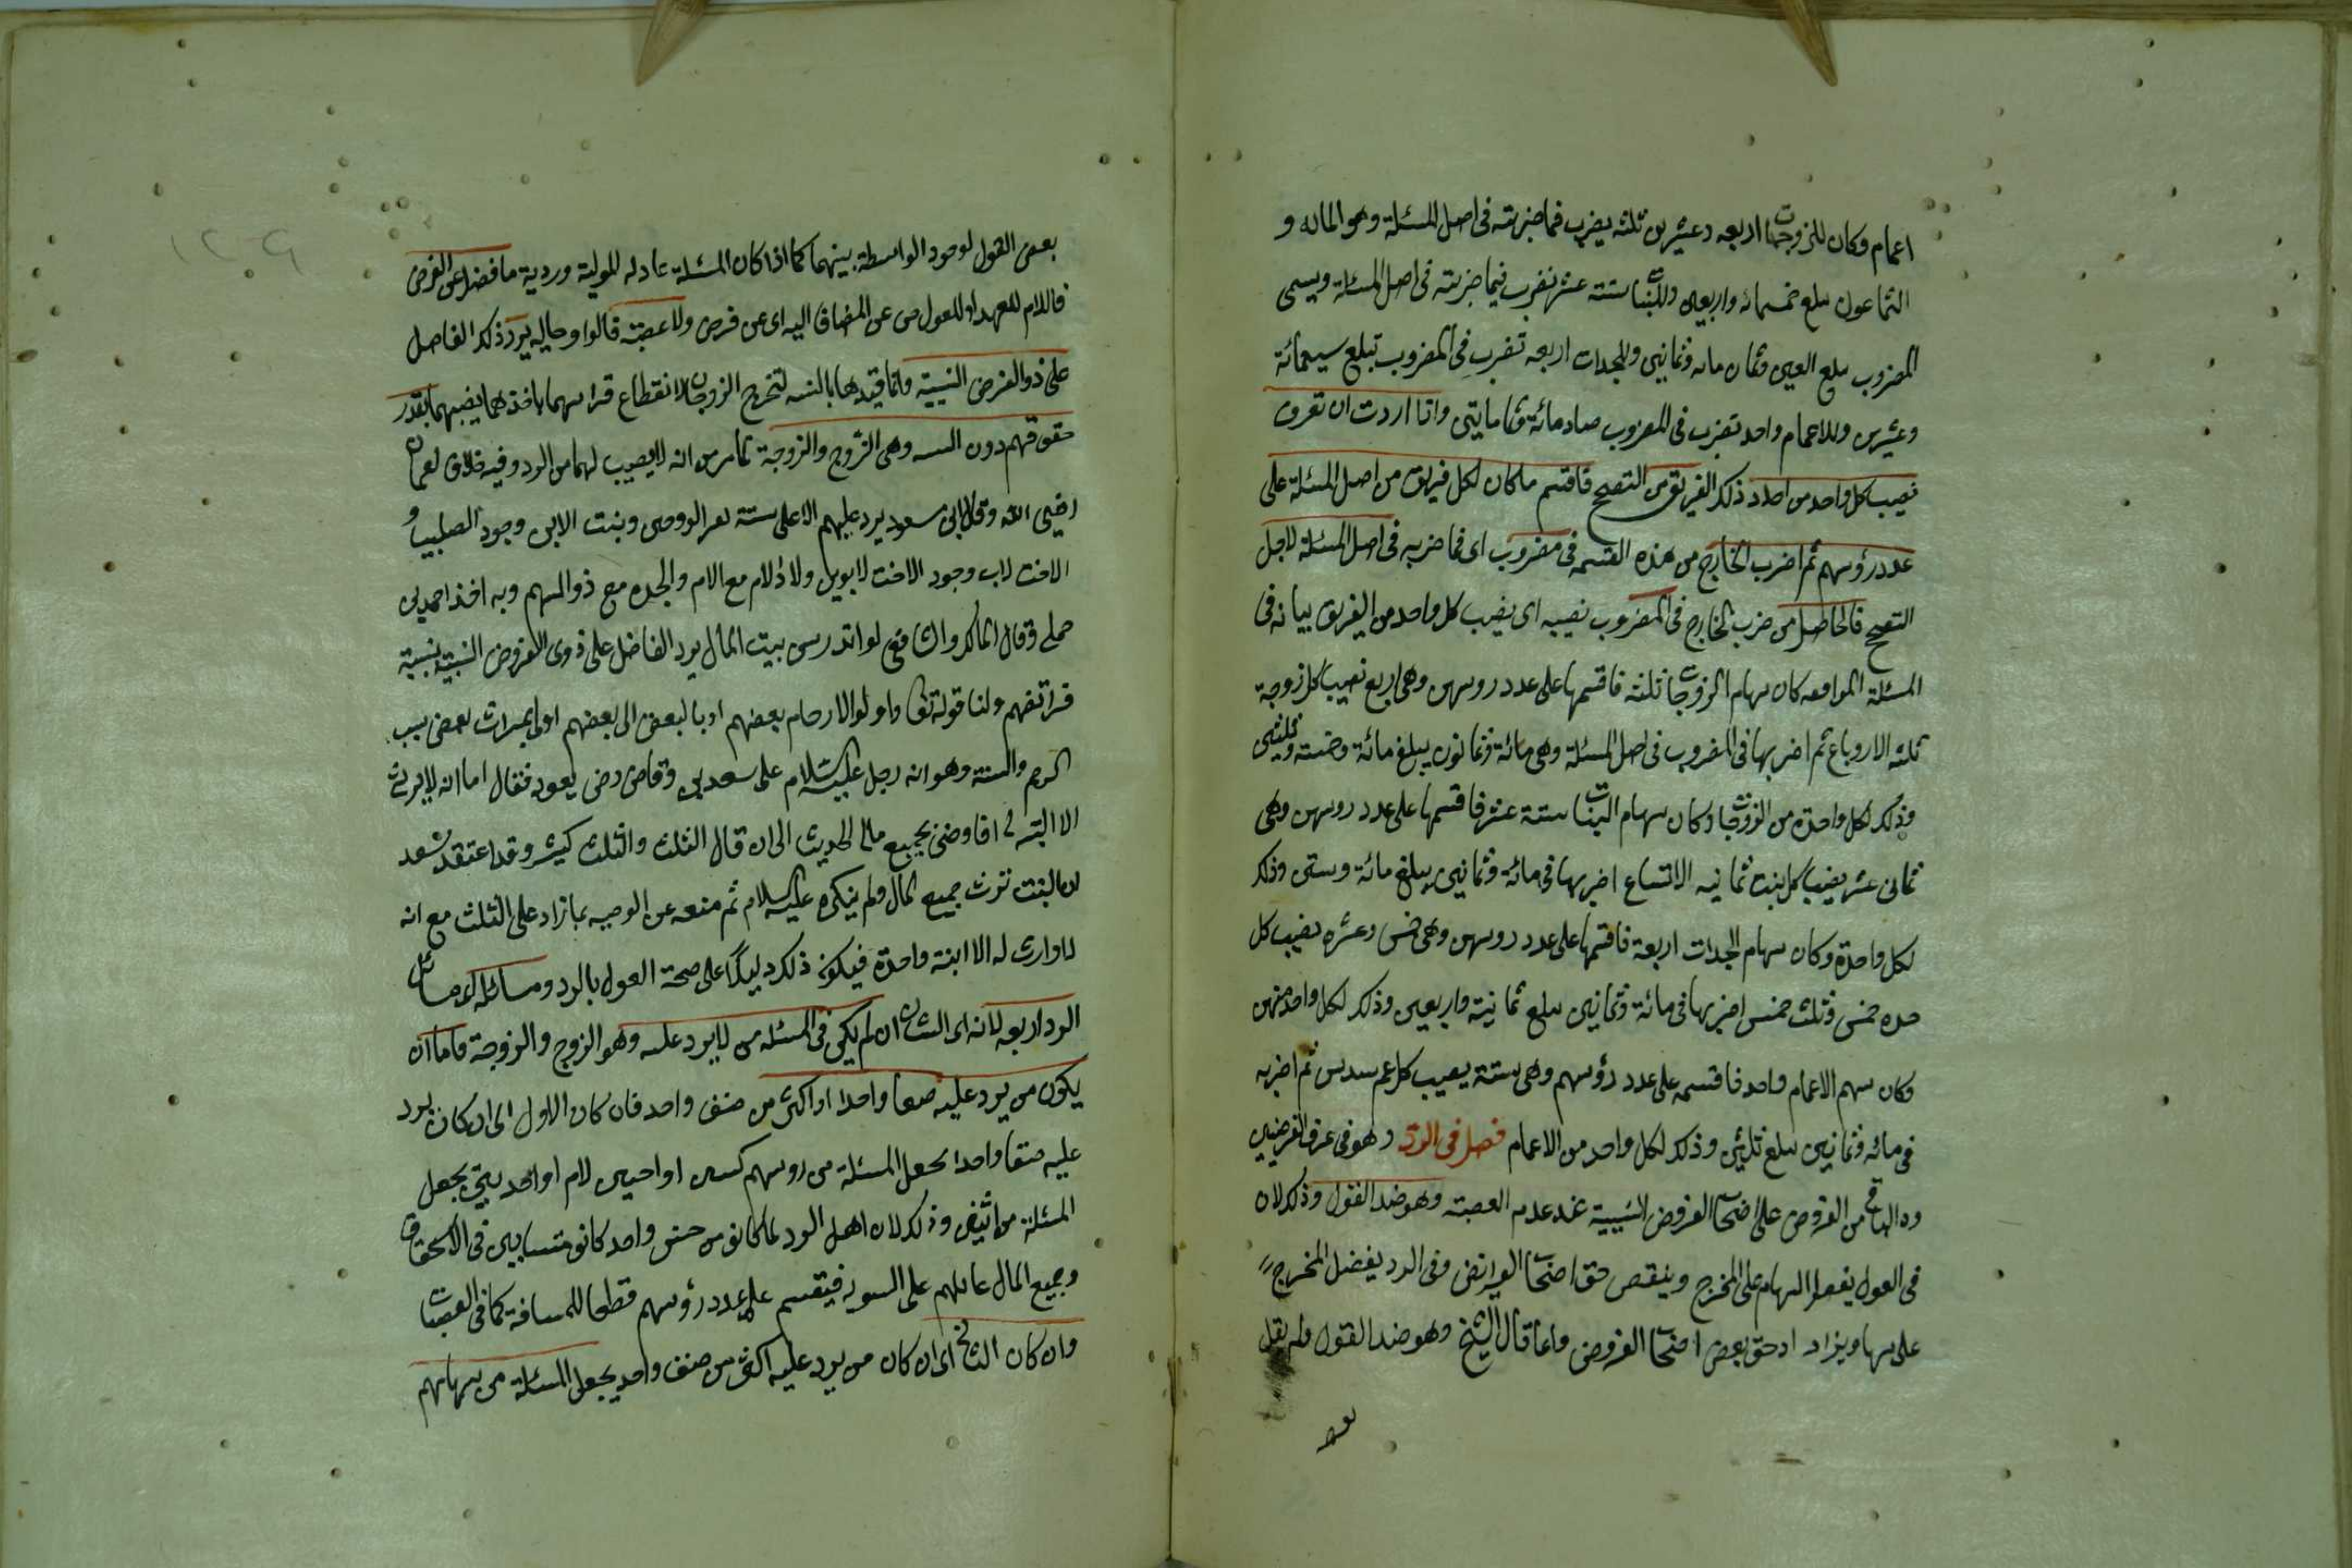 اعمام وكان للزوجات اربعه وعشرين ثلثه يضرب فيما ضربته فى اصل المسئلة وهو المائه و
الثمانون يبلغ خمسمائه واربعين وللبنات ستة عشر تضرب فيما ضربته فى اصل المسئلة ويسمى
المضروب يبلغ الفين وثمان مائه وثمانين وللجدات اربعه تضرب فى المضروب تبلغ سبعمائة
وعشرين وللاعمام واحد تضرب فى المضروب صار مائة وثمانين واذا اردت ان تعرف
نصيب كل واحد من احاد ذلك الفريق من التصحيح فاقسم ما كان لكل فريق من اصل المسئلة على
عدد رؤسهم ثم اضرب الخارج من هذه القسمه فى مضروب اى فيما ضربه فى اصل المسئلة لاجل
التصحيح فالحاصل من ضرب الخارج فى المضروب نصيبه اى نصيب كل واحد من الفريق بيانه فى
المسئلة كان سهام الزوجات ثلثه فاقسمها على عدد روسهن وهى اربع نصيب كل زوجة
ثلثه الارباع ثم اضربها فى المضروب فى اصل المسئلة وهى مائة وثمانون يبلغ مائة وخمسة وثلثين
وذلك لكل واحدة من الزوجات وكان سهام البنات ستة عشر فاقسمها على عدد روسهن وهى
ثمانى عشر نصيب كل بنت ثمانيه الاتساع اضربها فى مائة وثمانين يبلغ مائة وستين وذلك
لكل واحدة وكان سهام الجدات اربعة فاقسمها على عدد روسهن وهى خمس وعشره نصيب كل
جده خمس وثلث خمس اضربها فى مائة وثمانين يبلغ ثمانية واربعين وذلك لكل واحد منهن
وكان سهم الاعمام واحد فاقسمه على عدد رؤسهم وهى ستة نصيب كل عم سدس ثم اضربه
فى مائه وثمانين يبلغ ثلثين وذلك لكل واحد من الاعمام فصل فى الرد وهو فى عرف الفرضيين
رد الباقى من الفروض على اصحاب الفروض النسبية عند عدم العصبة وهو ضد العول وذلك لان
فى العول يفضل السهام على المخرج وينقص حق اصحاب الفرائض وفى الرد يفضل المخرج
على سهام ويزاد حق بعض اصحاب الفروض وانما قال الشيخ وهو ضد العول ولم يقل
بعض
بعض القول لوجود الواسطة بينهما كما اذا كان المسئلة عادله وردية ما فضل عن الفرض
فاللام للعهد او للعول من عن المضاف اليه اى عن فرض ولا عصبة قالوا وحاليه يرد ذلك الفاضل
على ذو الفرض النسبية وانما قيدها بالنسبه لتخرج الزوجان لانقطاع قرابتهما باخذهما نصيبهما بقدر
حقوقهم دون السببيه وهى الزوج والزوجة انه لا نصيب لهما من الرد وفيه خلاف لعثمان
رضى الله وقال ابن مسعود يرد عليهم الا على ستة نفر الزوجين وبنت الابن وجود الصلبيات و
الاخت لاب وجود الاخت لابوين ولا ولاد لام مع الام والجده مع ذو السهم وبه اخذ احمد بن
حنبل وقال المالك والشافعى لو اندرس بيت المال يرد الفاضل على ذوى الفروض النسبية بنسبة
فرائضهم ولنا قوله تعالى واولو الارحام بعضهم اولى ببعض الى بعضهم اولى بميراث بعض بسبب
الرحم والسنة وهو انه دخل عليه السلام على سعد بن وقاص رضى يعوده فقال اما انه لا يرث
الا البنته لى افاوضى بجميع مالى الحديث الى ان قال الثلث والثلث كثير وقد اعتقد سعد
ان البنت ترث جميع المال ولم ينكره عليه السلام ثم منعه عن الوصيه بما زاد على الثلث مع انه
لا وارث له الا ابنة واحدة فيكون ذلك دليلا على صحة القول بالرد ومسائله اى مسائل
الرد اربعه لانه اى الشان ان لم يكن فى المسئله من لا يرد عليه وهو الزوج والزوجة فاما ان
يكون من يرد عليه صنفا واحدا او اكثر من صنف واحد فان كان الاول اى ان كان يرد
عليه صنفا واحدا يجعل المسئلة من روسهم كبنتين او اختين لام او لجدتين يجعل
المسئلة من اثنين وذلك لان اهل الرد لما كانو من جنس واحد كانو متساويين فى الاستحقاق
وجميع المال عاللهم على السويه فيقسم على عدد رؤسهم قطعا للمسافة كما فى العصبات
وان كان الثانى اى ان كان من يرد عليه اكثر من صنف واحد يجعل المسئلة من سهامهم